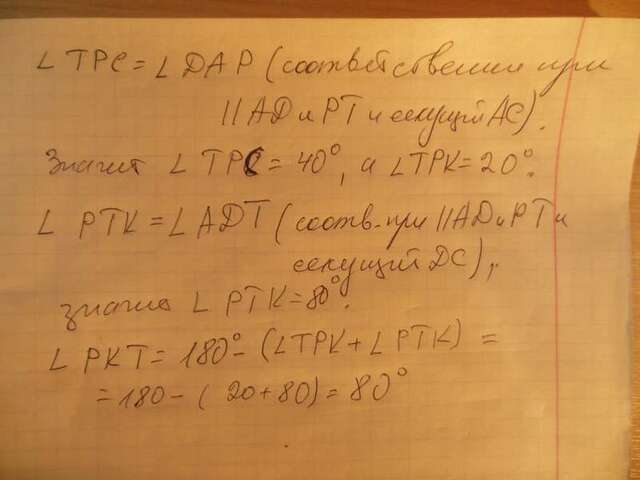 ∠ TPC = ∠ DAP (соответственные при
|| AD и PT и секущей AC).
Значит ∠ TPC = 40°, а ∠TPK = 20°.
∠ PTK = ∠ ADT (соотв. при || AD и PT и
секущей DC),
значит ∠ PTK = 80°.
∠ PKT = 180° - (∠TPK + ∠ PTK) =
= 180 - ( 20 + 80) = 80°